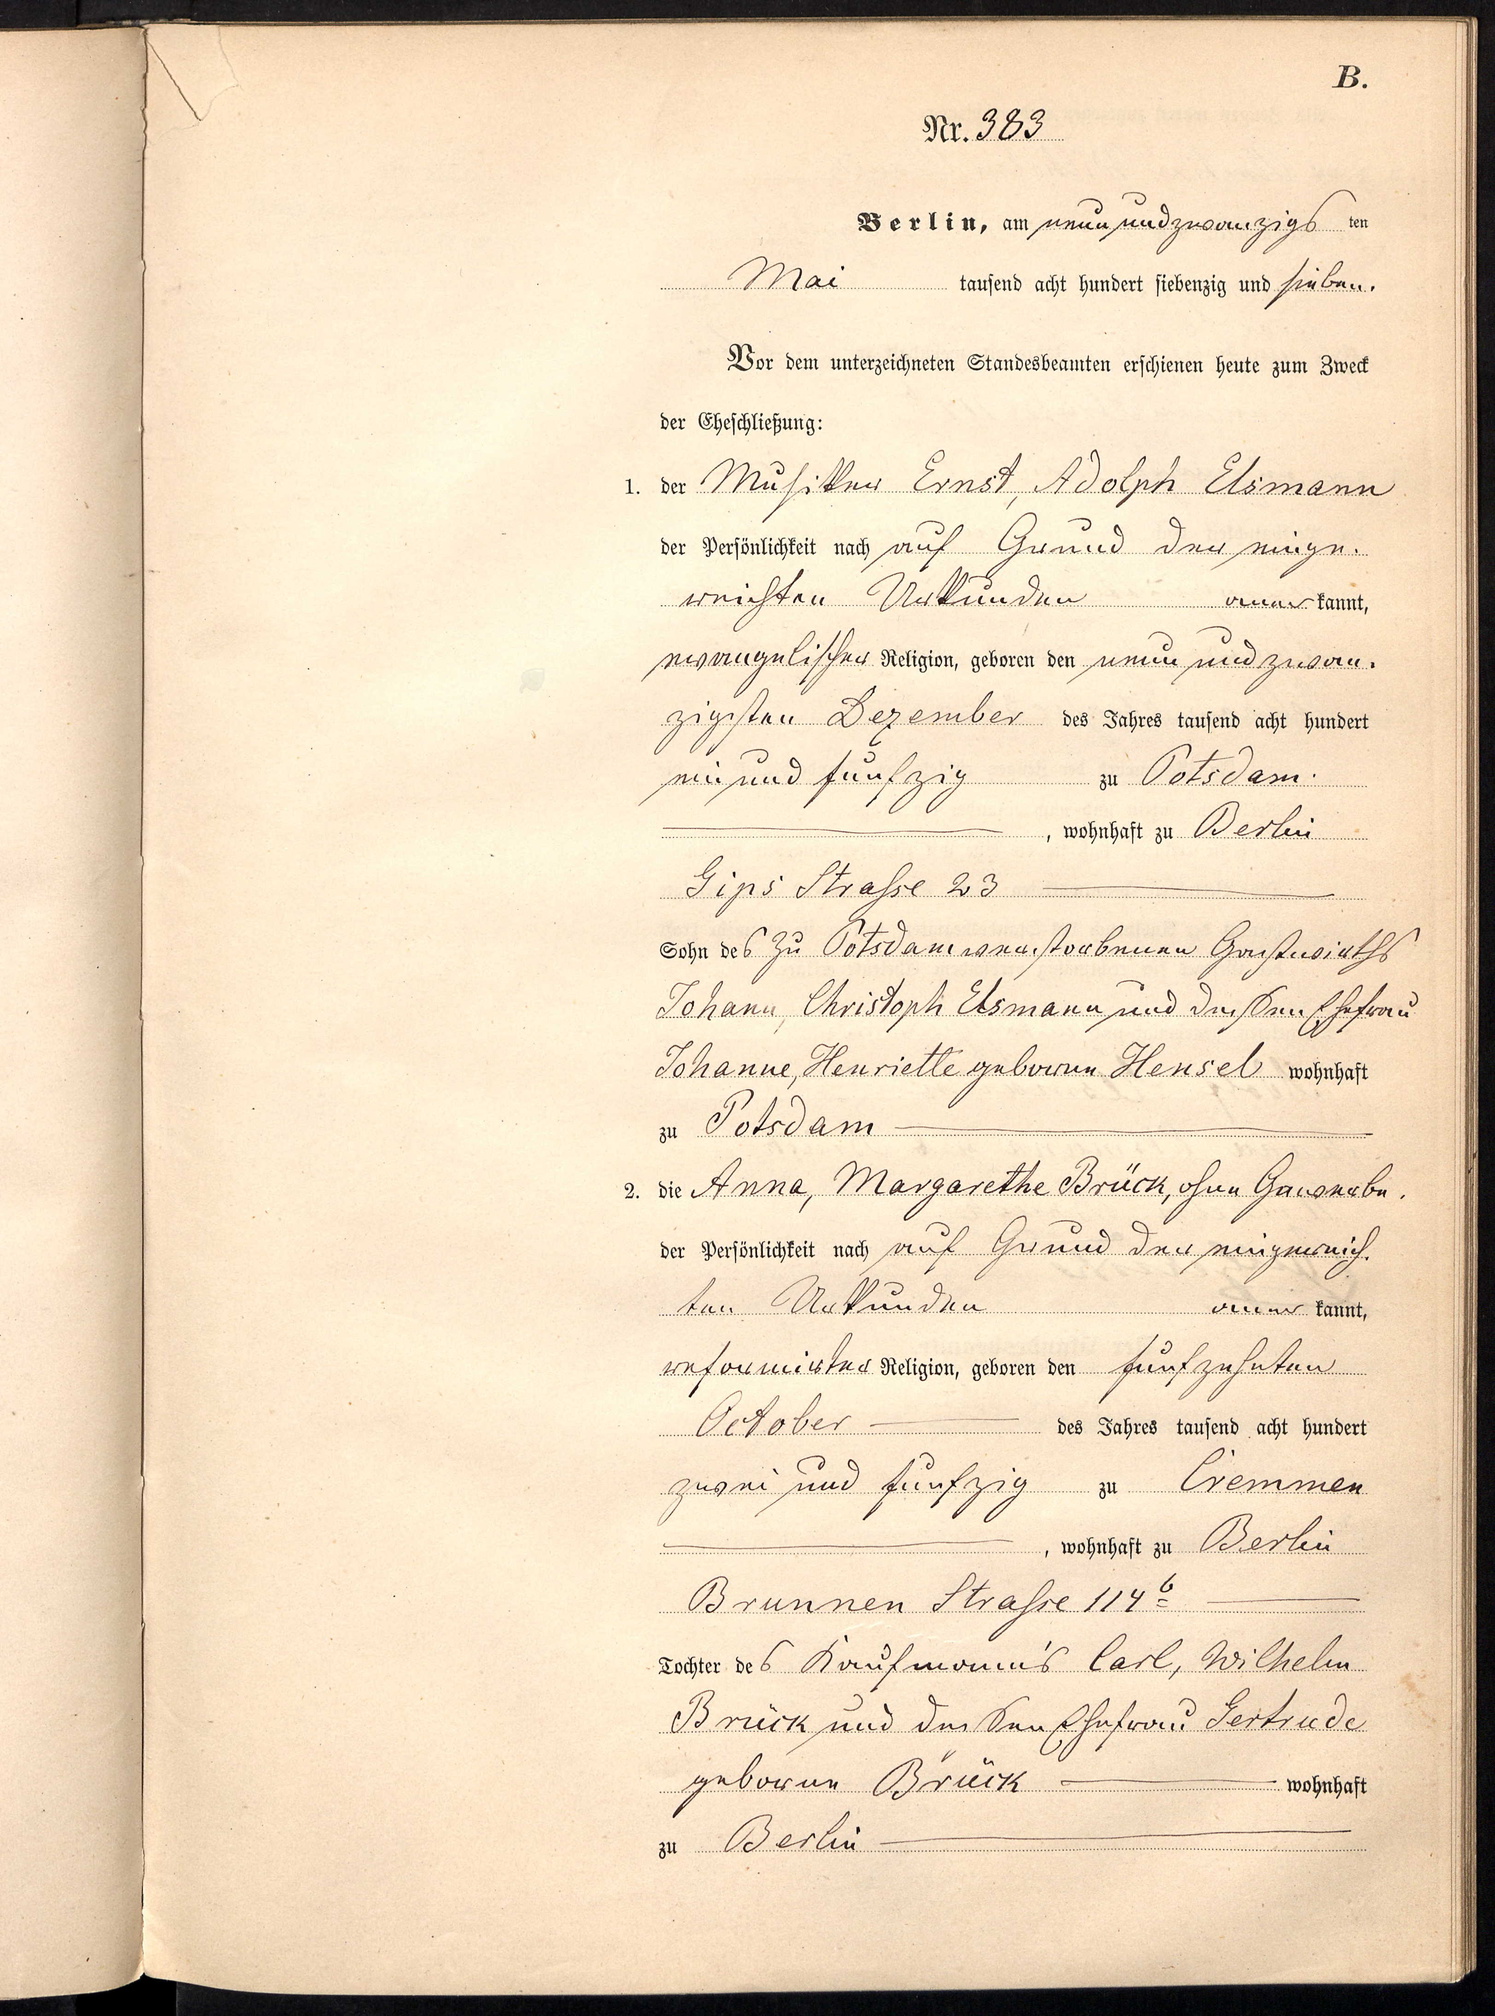 B.
Nr. 383
Berlin, am neun und zwanzigs ten
Mai tausend acht hundert siebenzig und sieben.
Vor dem unterzeichneten Standesbeamten erschienen heute zum Zweck
der Eheschließung:
1. der Musiker Ernst, Adolph Elsmann
der Persönlichkeit nach auf Grund der einge-
reichten Urkunden aner kannt,
evangelischer Religion, geboren den neun und zwan-
zigsten Dezember des Jahres tausend acht hundert
ein und fünfzig zu Potsdam.
, wohnhaft zu Berlin
Gips Strasse 23
Sohn des zu Potsdam verstorbenen Gastwirths
Johann, Christoph Elsmann und dessen Ehefrau
Johanne, Henriette geborene Hensel wohnhaft
zu Potsdam
2. die Anna, Margarethe Brück, ohne Gewerbe.
der Persönlichkeit nach auf Grund der eingereich-
ten Urkunden aner kannt,
reformirter Religion, geboren den fünfzehnten
October des Jahres tausend acht hundert
zwei und fünfzig zu Cremmen
, wohnhaft zu Berlin
Brunnen Strasse 114 b
Tochter des Kaufmann's Carl, Wilhelm
Brück und dessen Ehefrau Gertrude
geborene Brück wohnhaft
zu Berlin